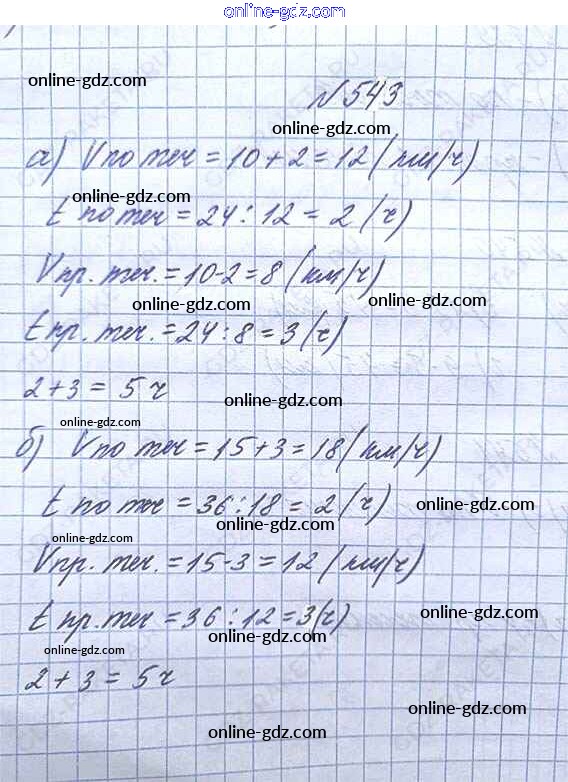 online-gdz.com
online-gdz.com
№543
online-gdz.com
а) Vпо теч = 10 + 2 = 12 (км/ч)
online-gdz.com
t по теч = 24 : 12 = 2 (ч)
Vпр. теч. = 10-2 = 8 (км/ч)
online-gdz.com online-gdz.com
t пр. теч. = 24 : 8 = 3 (ч)
2+3 = 5 ч
online-gdz.com
online-gdz.com
б) Vпо теч = 15+3 = 18 (км/ч)
t по теч = 36 : 18 = 2 (ч)
online-gdz.com
online-gdz.com
online-gdz.com
Vпр. теч. = 15-3 = 12 (км/ч)
t пр. теч = 36 : 12 = 3 (ч)
online-gdz.com
online-gdz.com
online-gdz.com
2 + 3 = 5 ч
online-gdz.com
online-gdz.com